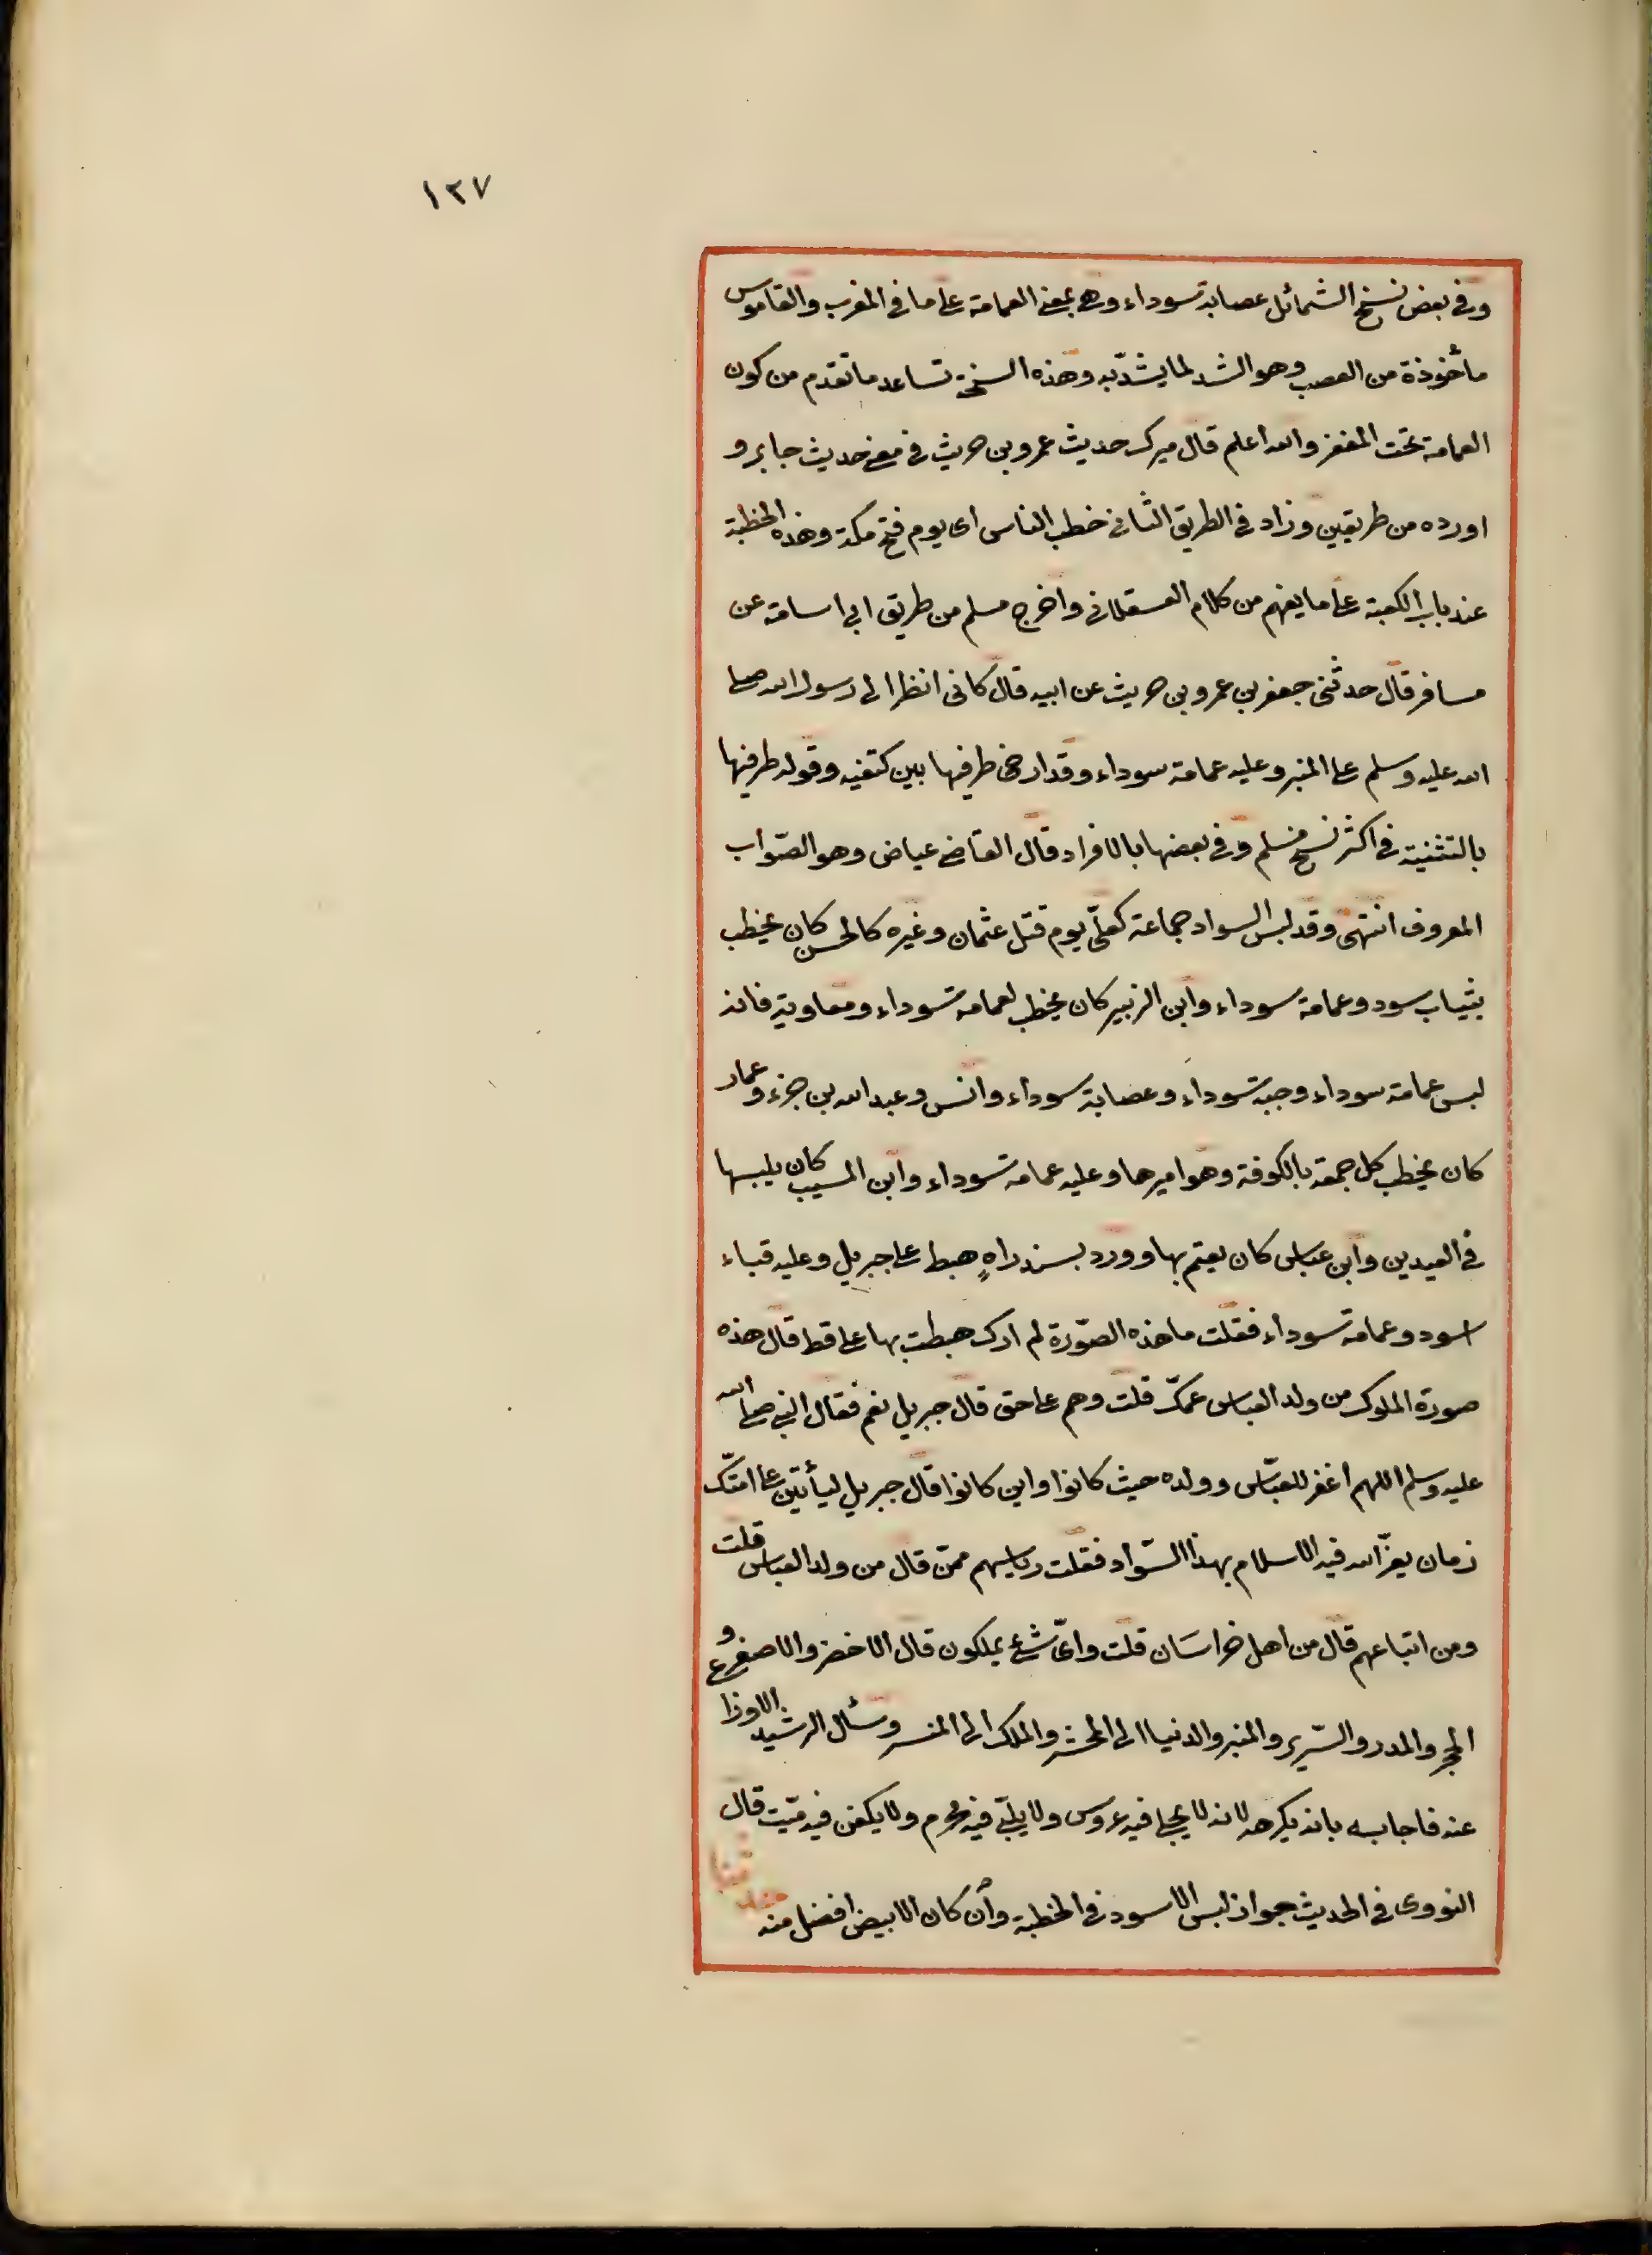 ١٢٧
وفى بعض نسخ الشمائل عصابة سوداء وهى بمعنى العمامة على ما فى المغرب والقاموس
مأخوذة من العصب وهو الشد لما يشدّ به وهذه النسخة تساعد ما تقدم من كون
العمامة تحت المغفر والله اعلم قال ميرك حديث عمرو بن حريث فى معنى حديث جابر و
اورده من طريقين وزاد فى الطريق الثانى خطب الناس اى يوم فتح مكة وهذه الخطبة
عند باب الكعبة على ما يفهم من كلام العسقلانى واخرج مسلم من طريق ابى اسامة عن
مسافر قال حدثنى جعفر بن عمرو بن حريث عن ابيه قال كانى انظر الى رسول الله صلى
الله عليه وسلم على المنبر وعليه عمامة سوداء وقد ارخى طرفيها بين كتفيه وقوله طرفيها
بالتثنية فى اكثر نسخ مسلم وفى بعضها بالافراد قال القاضى عياض وهو الصّواب
المعروف انتهى وقد لبس السواد جماعة كعلىّ يوم قتل عثمان وغيره كالحسن كان يخطب
بثياب سود وعمامة سوداء وابن الزبير كان يخطب بعمامة سوداء ومعاوية فانه
لبس عمامة سوداء وجبة سوداء وعصابة سوداء وانس وعبد الله بن جزء وعمار
كان يخطب كل جمعة بالكوفة وهو اميرها وعليه عمامة سوداء وابن المسيب كان يلبسها
فى العيدين وابن عباس كان يعتم بها وورد بسند واهٍ هبط على جبريل وعليه قباء
اسود وعمامة سوداء فقلت ما هذه الصّورة لم ارك هبطت بها على قط قال هذه
صورة الملوك من ولد العباس عمّك قلت وهم على حق قال جبريل نعم فقال النبى صلى الله
عليه وسلم اللهم اغفر للعبّاس وولده حيث كانوا واين كانوا قال جبريل ليأتينّ على امتّك
زمان يعزّ الله فيه الاسلام بهذا السّواد فقلت رياسهم ممّن قال من ولد العباس قلت
ومن اتباعهم قال من اهل خراسان قلت واىّ شئ يملكون قال الاخضر والاصفر و
الحجر والمدر والسّرير والمنبر والدنيا الى المحشر والملك الى المنسر وسئل الرشيد الاوزا
عنه فاجابه بانه يكرهه لانه لا يجلى فيه عروس ولا يلبّى فيه محرم ولا يكفن فيه ميّت قال
النووى فى الحديث جواز لبس الاسود فى الخطبة وأن كان الابيض افضل منه